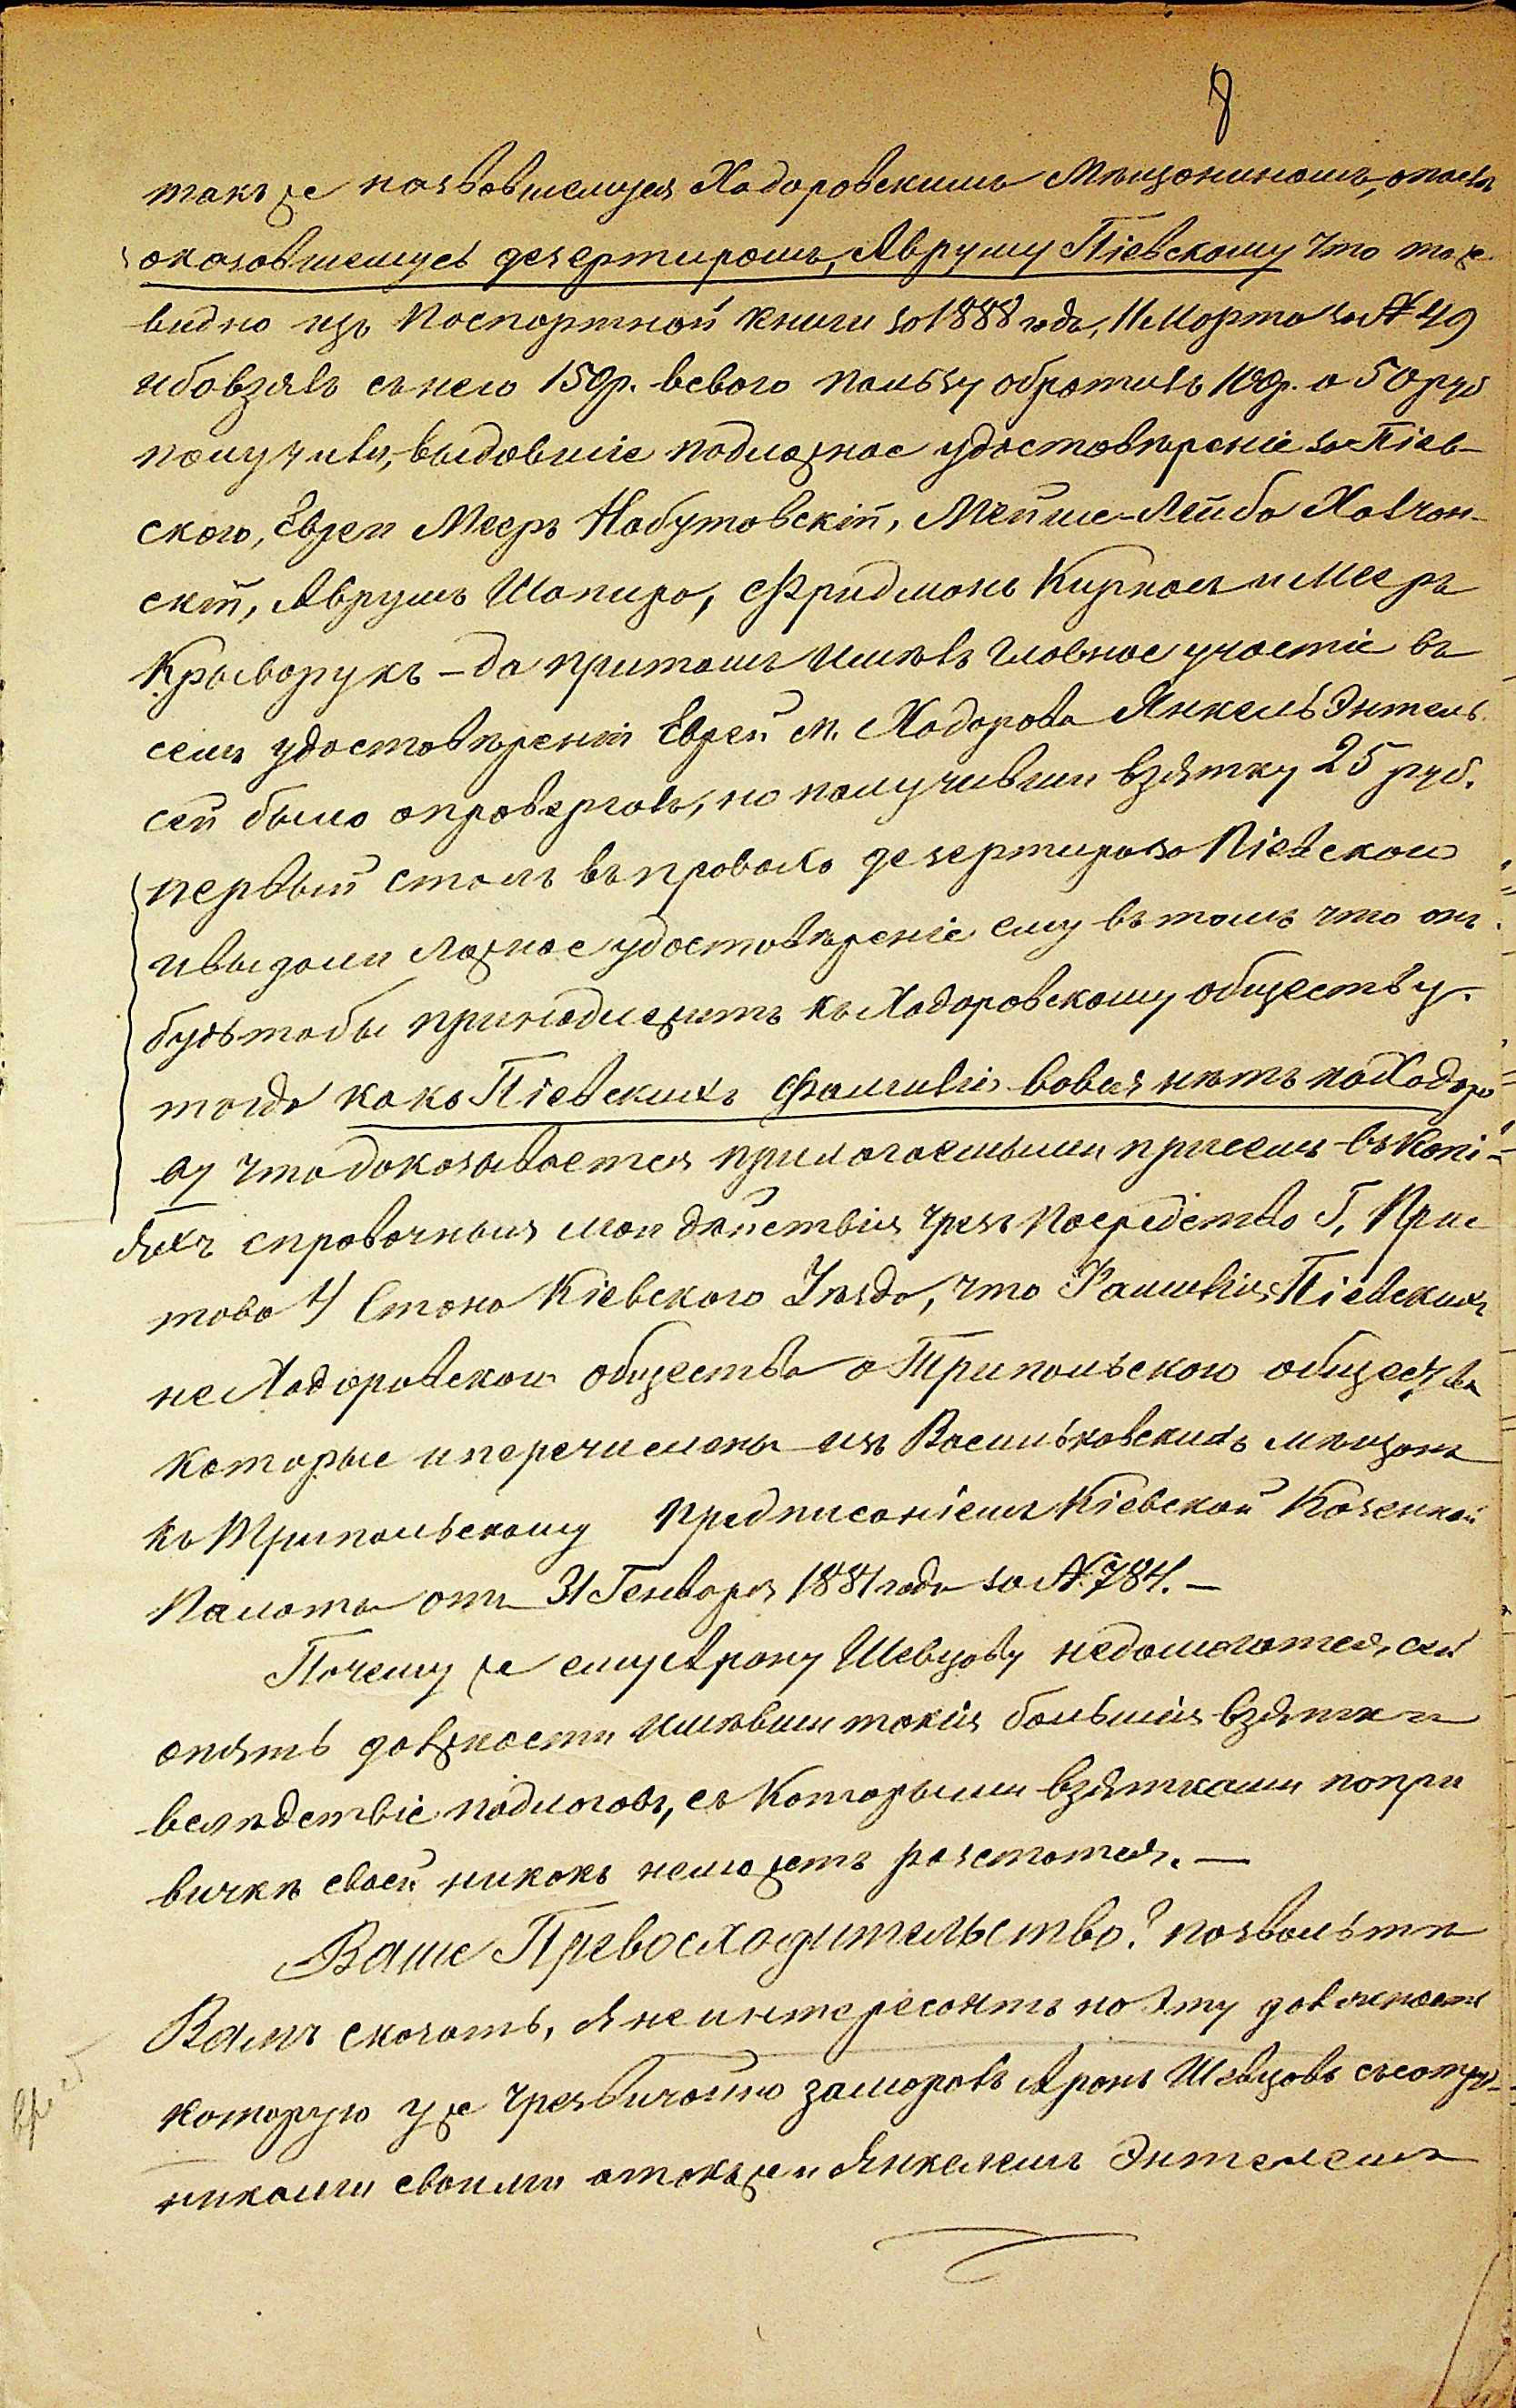 8
также назвавшемуся Ходоровскимъ Мѣщаниномъ, опосля
оказавшемусь дезертиромъ, Авруму Піевскому что тоже
видно изъ Поспортной книги за 1888 годъ, 11 Марта за № 49
ибо взялъ съ него 150 р. в свою пользу обротилъ 100 р. а 50 руб
получили, выдовшіе подложное удостовѣреніе за Піев-
ского, Евреи Меерь Набутовскій, Мейше-Лейба Халчан-
скій, Аврумъ Шапиро, Фридманъ Кирнос и Меерь
Крыворукъ – да притомъ имѣлъ Главное участіе въ
семъ удостовѣреніи Еврей м. Ходорова Янкель Энтель
сей было опровергалъ, но получивши взятку 25 руб.
первый сталъ въ провахъ дезертира за Піевского
и выдали ложное удостовѣреніе ему въ томъ что онъ
будьтобы принодлежитъ къ Ходоровскому обществу.
тогда какъ Піевскихъ Фамиліи вовся нѣтъ по Ходоро
ву что доказывается прилогаемыми при семъ въ Копі-
яхъ справочныя мои дѣйствія чрезъ посредство Г. При
става 4 Стана Кіевского Уѣзда, что Фамилія Піевскихъ
не Ходоровского общества а Трипольского общества
которые и перечислены изъ Васильковскихъ мѣщанъ
къ Трипольскому предписаніемъ Кіевской Казенной
Палаты отъ 31 Генваря 1881 года за № 784. –
Почему же ему Арону Шевцову недомогатся, сей
опять должности имѣвши такія большія взятки
вслѣдствіе подлоговъ, съ которыми взятками попри
вичкѣ своей никокъ неможетъ розстатся. –
Ваше Превосходительство! позвольте
Вамъ сказать, Я не интересантъ на эту должность
которую уже чрезвичайно замаралъ Аронъ Шевцовъ съ сотруд-
никами своими а также и Янкелемъ Энтелемъ